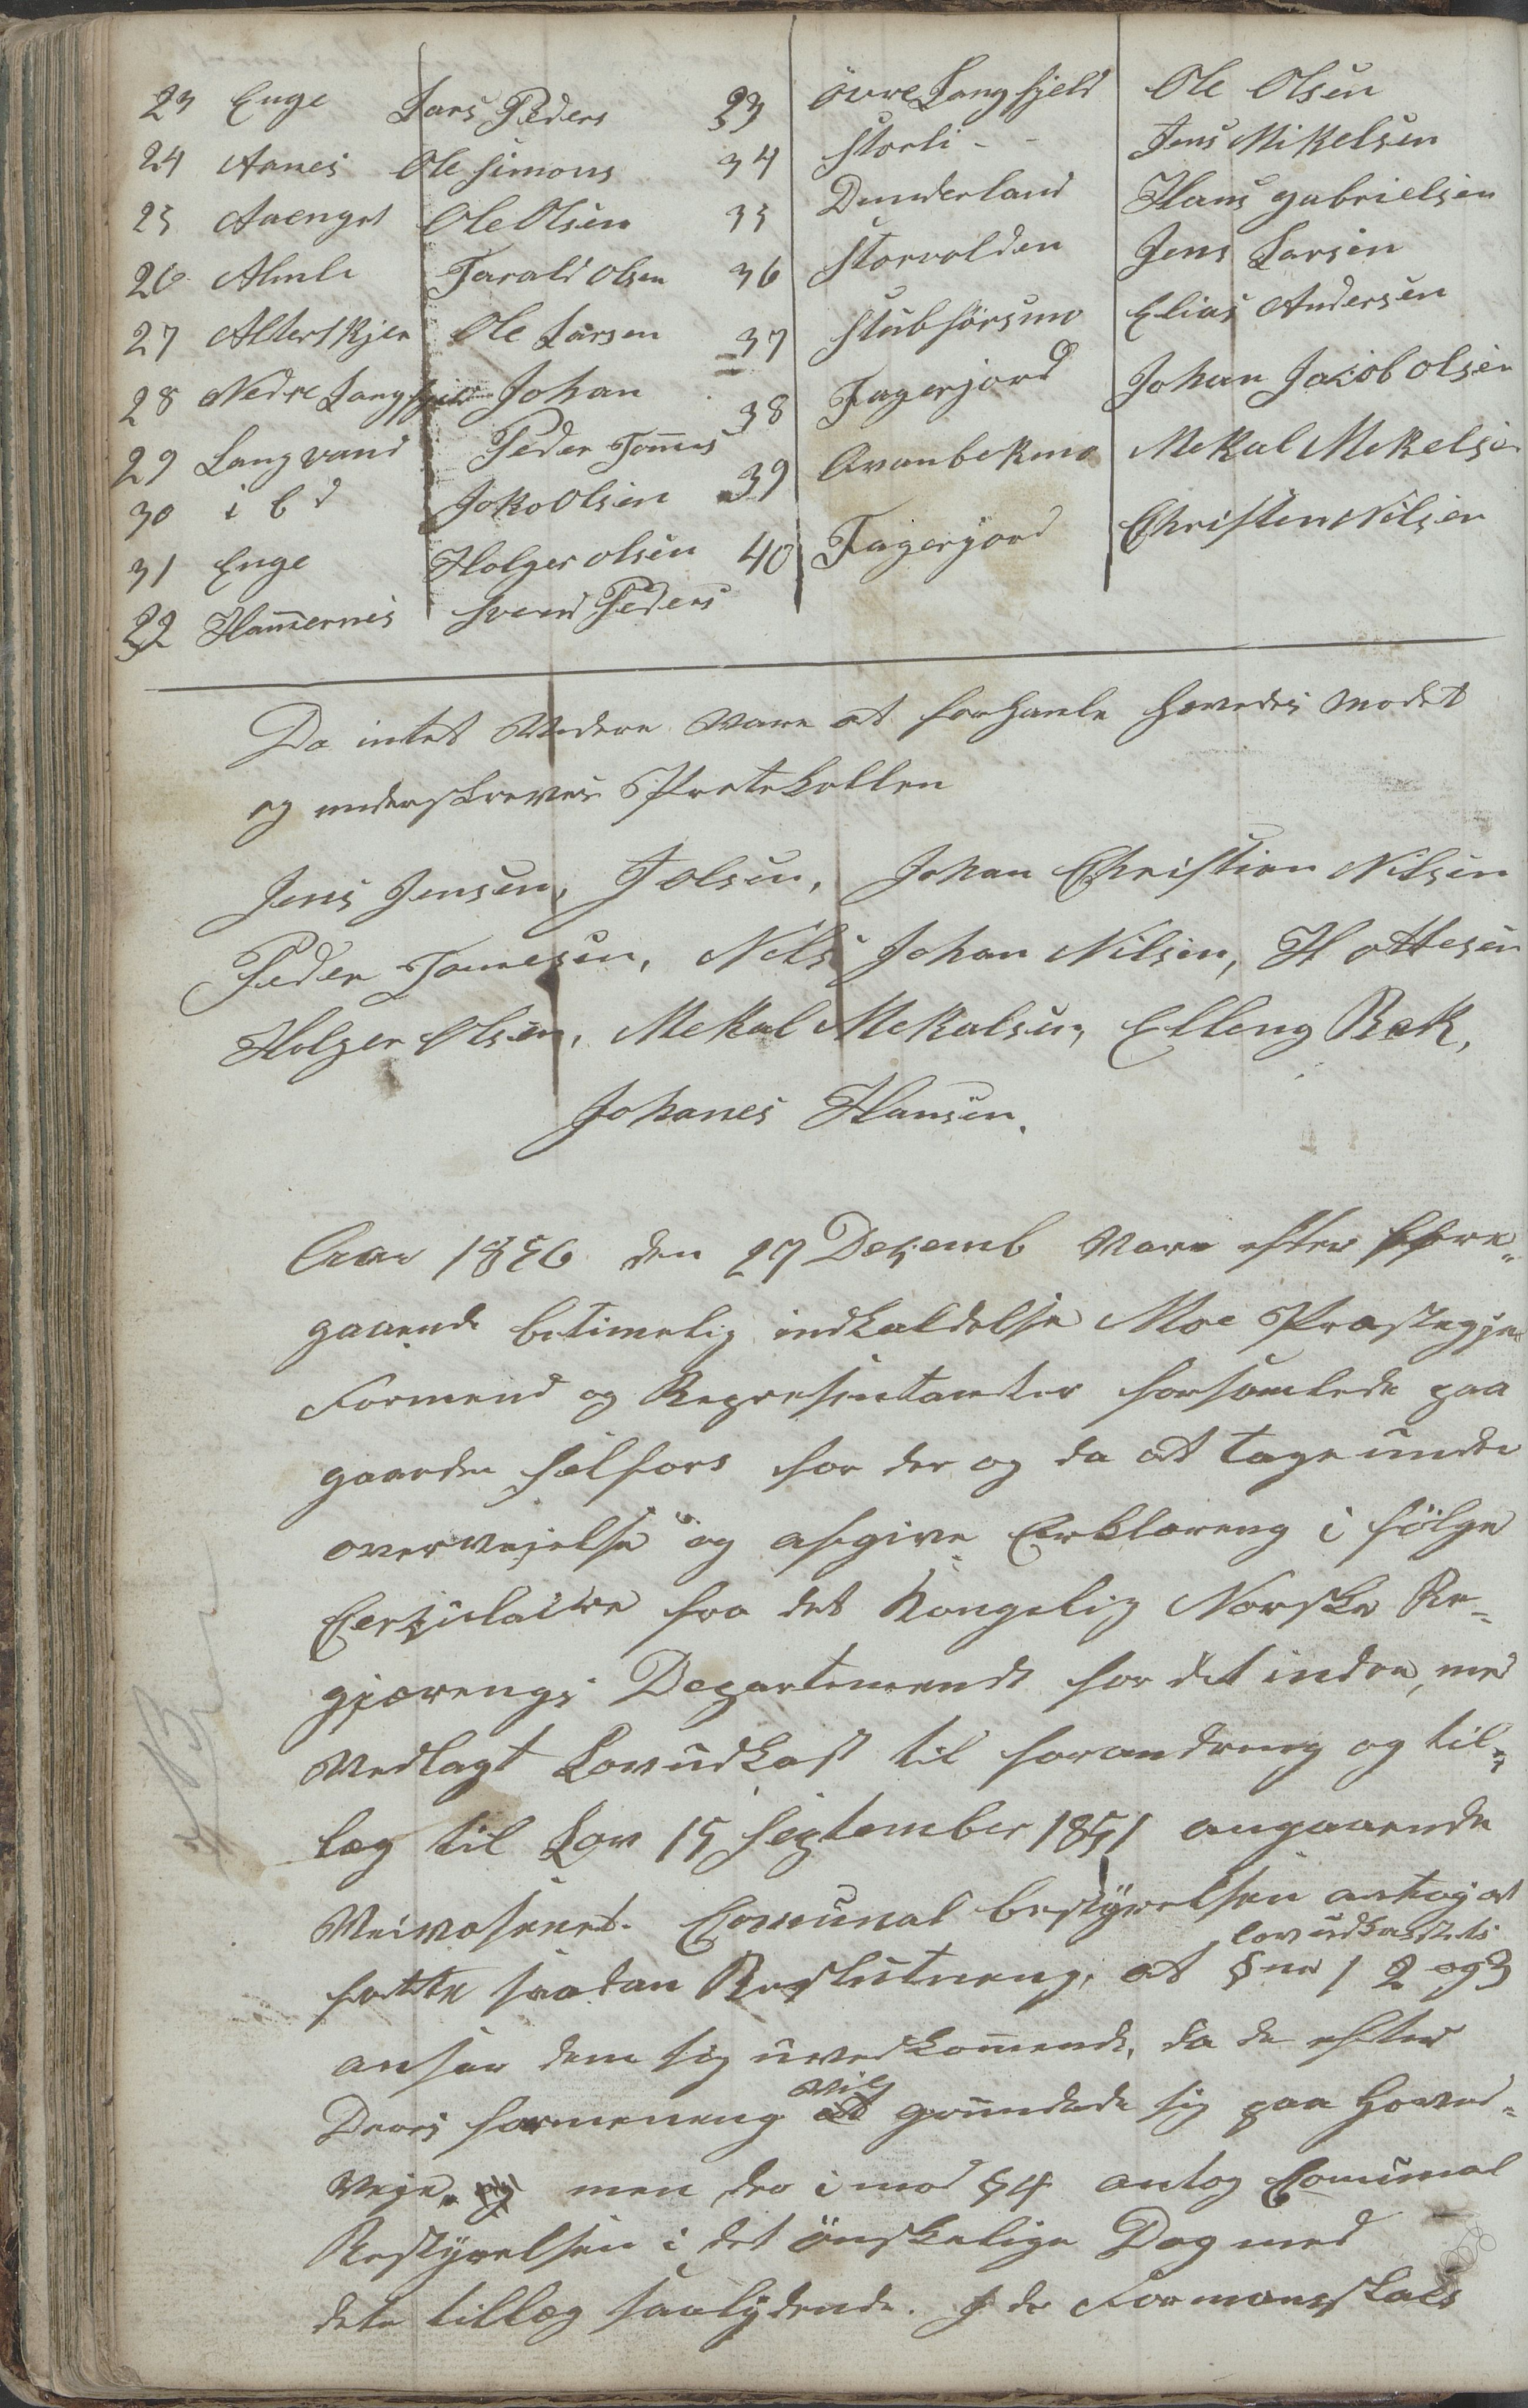 23 Enge Lars Peders 33 övre Langfjeld Ole Olsen
24 Aanes Ole Simons 34 Storli - - Jens Mikelsen
25 Aaenget Ole Olsen 35 Dunderland Hans Gabrielsen
26 Almli Tarald Olsen 36 Storvolden Jens Larsen
27 Alterskjer Ole Larsen 37 Stubhörsmo Elias Andersen
28 Nedre Langfjeld Johan 38 Fagerjord Johan Jacob Olsen
29 Langvand Peder Tomes 39 Avanbekmo Mekal Mekelsen
30 i bd Joko Olsen 40 Fagerjord Christen Nilsen
31 Enge Holger Olsen
32 Hammernes Svend Peders
Da intet Vedere Vare at forhanle hævedes Modet
og underskreves Protekollen
Jens Jensen, J Olsen, Johan Christian Nilsen
Peder Tomesen, Nils Johan Nilsen, H Ottesen
Holger Olsen, Mekal Mekalsen, Elleng Bek,
Johanes Hansen.
Aar 1856 den 27 Desemb Vare efter fore„
gaaende betimelig indkaldelse Moe Præstegje
Formend og Represintanter forsamlede paa
gaarden Selfors for der og da at tage under
overvejelse og afgive Erklæreng i følge
Cerkulaire fra det Kongelig Norske Re„
gjærengs Departemendt for det indre, med
Vedlagt Lovudkast til forandreng og til„
læg til Lov 15 September 1851 angaaende
Veivæsenet. Comunal bestyrelsen antog at
fatte saadan Beslutneng, at lovudkastets §ne 1 2 og 3
anser dem sig uvedkommende, da de efter
Deres formeneng vil grundede sig paa Hoved„
Veje„ men der i mod § 4 antog Comunal
Bestyrelsen i det önskelige Dog med
dete tillæg saalydende. I de Formanskabs